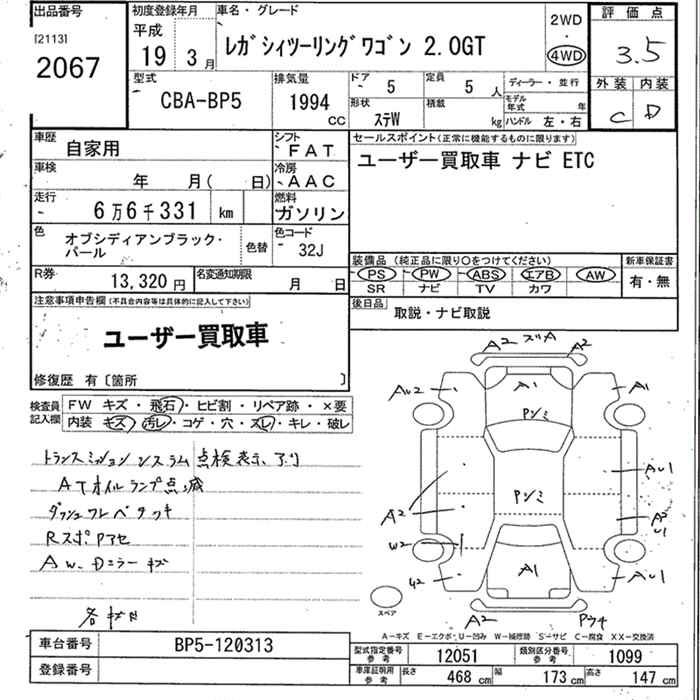 出品番号 初度登録年月 車名・グレード 2WD 評価点
[2113] 平成
2067 19年 3月 レガシィツーリングワゴン 2.0GT 4WD 3.5
型式 排気量 ドア 5 定員 5人 ディーラー・並行 外装 内装
CBA-BP5 1994cc 形状 ステW 積載 kg モデル年式 年 C D
ハンドル 左・右
車歴 自家用 シフト FAT セールスポイント(正常に機能するものに限ります)
車検 年 月( 日) 冷房 AAC ユーザー買取車 ナビ ETC
走行 6万6千331 km 燃料 ガソリン
色 オブシディアンブラック・パール 色替 色コード 32J
装備品 (純正品に限り○をつけてください) 新車保証書
PS PW ABS エアB AW 有・無
SR ナビ TV カワ
R券 13,320円 名変通知期限 月 日
後日品 取説・ナビ取説
注意事項申告欄(不具合内容等は具体的に記入して下さい)
ユーザー買取車
修復歴 有〔箇所 〕
検査員記入欄 FW キズ・飛石・ヒビ割・リペア跡・×要
内装 キズ・汚レ・コゲ・穴・スレ・キレ・破レ
トランスミッションシステム点検表示、アリ
ATオイルランプ点滅
RスポPアセ
AW、Dミラーキズ
各キズ凹
A2 ズA A2
AW2 A1 A1
Pシミ
AU1
Pシミ
A2 A2
U1
W2
U2 A1 AU1
スペア
A2 Pウキ
A-キズ E-エクボ U-凹み W-補修跡 S-サビ C-腐食 XX-交換済
車台番号 BP5-120313
登録番号
型式指定番号 参考 12051 類別区分番号 参考 1099
車庫証明用 参考 長さ 468 cm 幅 173 cm 高さ 147 cm